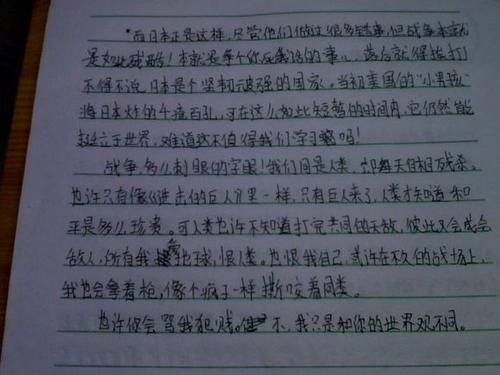 而日本正是这样，尽管他们做过很多错事，但战争本就
是如此残酷！本就是争个你死我活的事儿，落后就得挨打
不得不说，日本是个坚韧顽强的国家。当初美国的“小男孩”
将日本炸的千疮百孔，可在这么如此短暂的时间内，它仍然能
挺立于世界，难道这不值得我们学习嘛吗！
战争，多么刺眼的字眼！我们同是人类，却每天自相残杀。
也许只有像《进击的巨人》里一样，只有巨人来了，人类才知道和
平是多么珍贵。可人类也许不知道打完共同的天敌，彼此又会成会
敌人，所有我 地球，恨人类。也恨我自己，或许在不久的战场上，
我也会拿着枪，像个疯子一样撕咬着同类。
也许你会骂我犯贱。 不，我只是和你的世界观不同。